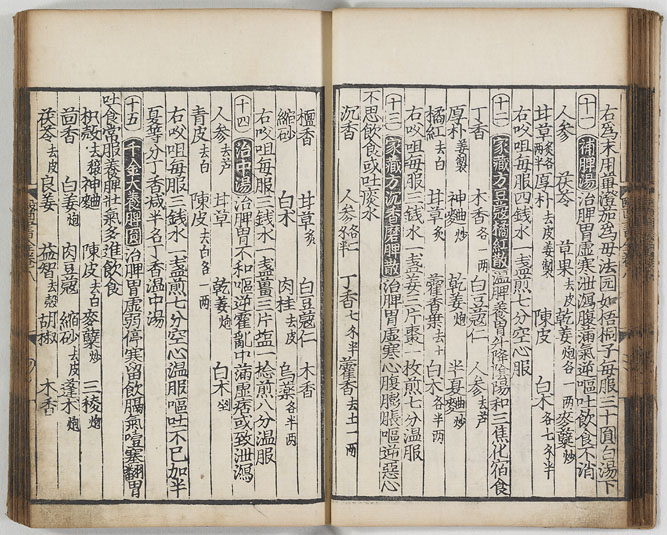 右爲末用前澄茄爲母法圓如梧桐子每服三十圓白湯下
十一 補脾湯治脾胃虛寒泄瀉腹滿氣逆嘔吐飲食不消
人參 茯苓 草果去皮 乾姜炮各一兩 麥蘖炒
甘草炙各兩半 厚朴去皮姜製 陳皮 白朮各七錢半
右㕮咀每服四錢水一盞煎七分空心服
十二 家藏方豆蔻橘紅散溫脾養胃升降陰陽和三焦化宿食
丁香 木香各一兩 白豆蔻仁 人參去芦
厚朴姜製 神麯炒 乾姜炮 半夏麯炒
橘紅去白 甘草炙 藿香葉去土 白朮各半兩
右㕮咀每服三錢水一盞姜三片棗一枚煎七分溫服
十三 家藏方沉香磨脾散治脾胃虛寒心腹膨脹嘔逆惡心
不思飲食或吐痰水
沉香 人參各一錢半 丁香七錢半 藿香去土一兩
檀香 甘草炙 白豆蔻仁 木香
縮砂 白朮 肉桂去皮 烏藥各半兩
右㕮咀每服三錢水一盞薑三片塩一捻煎八分溫服
十四 治中湯治脾胃不和嘔逆霍亂中滿虛痞或致泄瀉
人參去芦 甘草 乾姜炮 白朮剉
青皮去白 陳皮去白各一兩
右㕮咀每服三錢水一盞煎七分空心溫服嘔吐不已加半
夏等分丁香減半名丁香溫中湯
十五 千金大養脾圓治脾胃虛弱停寒留飲膈氣噎塞翻胃
吐食常服養脾壯氣多進飲食
枳殼去穰 神麯 陳皮去白 麥蘖炒 三稜炮
茴香 白姜炮 肉豆蔻 縮砂去皮 蓬朮炮
茯苓去皮 良姜 益智去殼 胡椒 木香